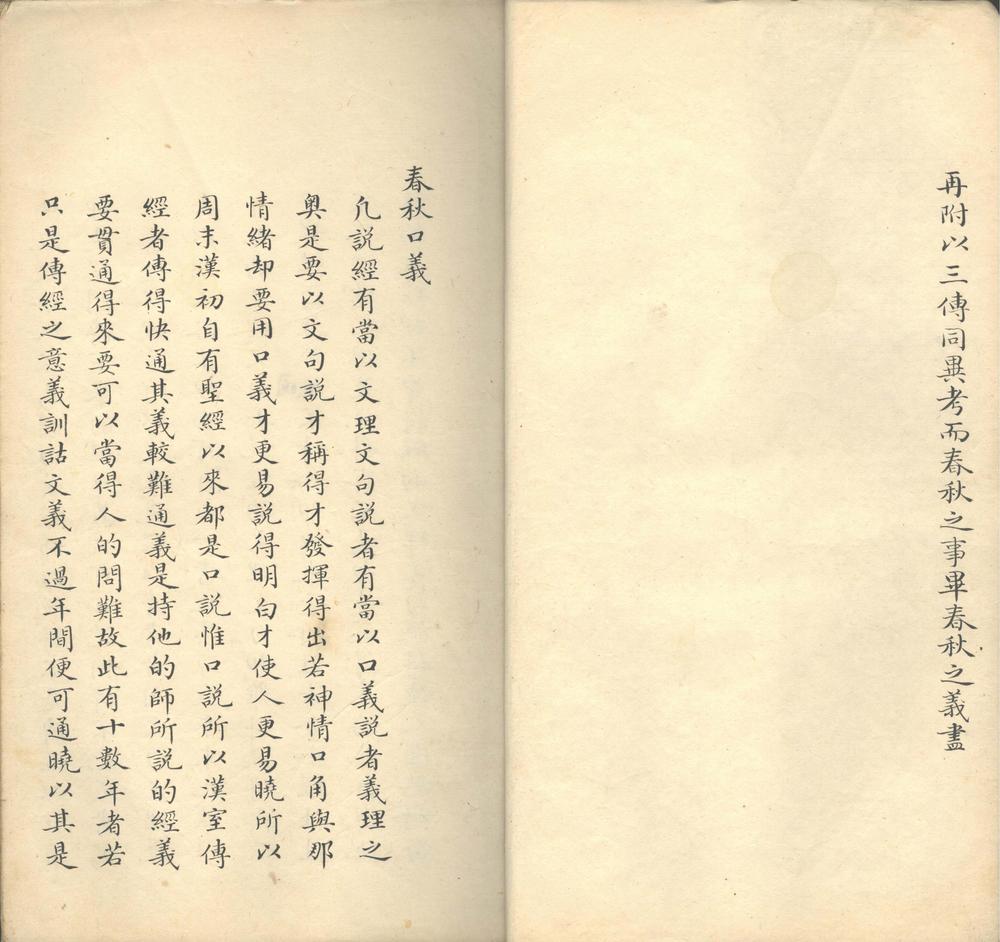 再附以三傳同異考而春秋之事畢春秋之義盡
春秋口義
凡說經有當以文理文句說者有當以口義說者義理之
奧是要以文句說才稱得才發揮得出若神情口角與那
情緒却要用口義才更易說得明白才使人更易曉所以
周末漢初自有聖經以來都是口說惟口說所以漢室傳
經者傳得快通其義較難通義是持他的師所說的經義
要貫通得來要可以當得人的問難故此有十數年者若
只是傳經之意義訓詁文義不過年間便可通曉以其是